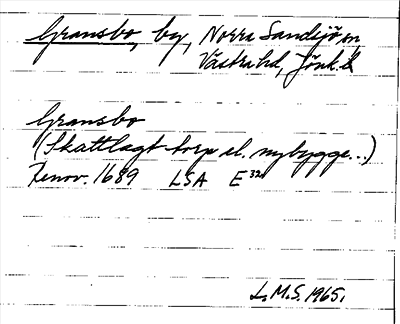 Gransbo, by, Norra Sandsjö sn
Västra hd, Jönk. l
Gransbo
(Skattlagt torp el. nybygge...)
7 nov. 1689 LSA E 32
L.M.S. 1965.